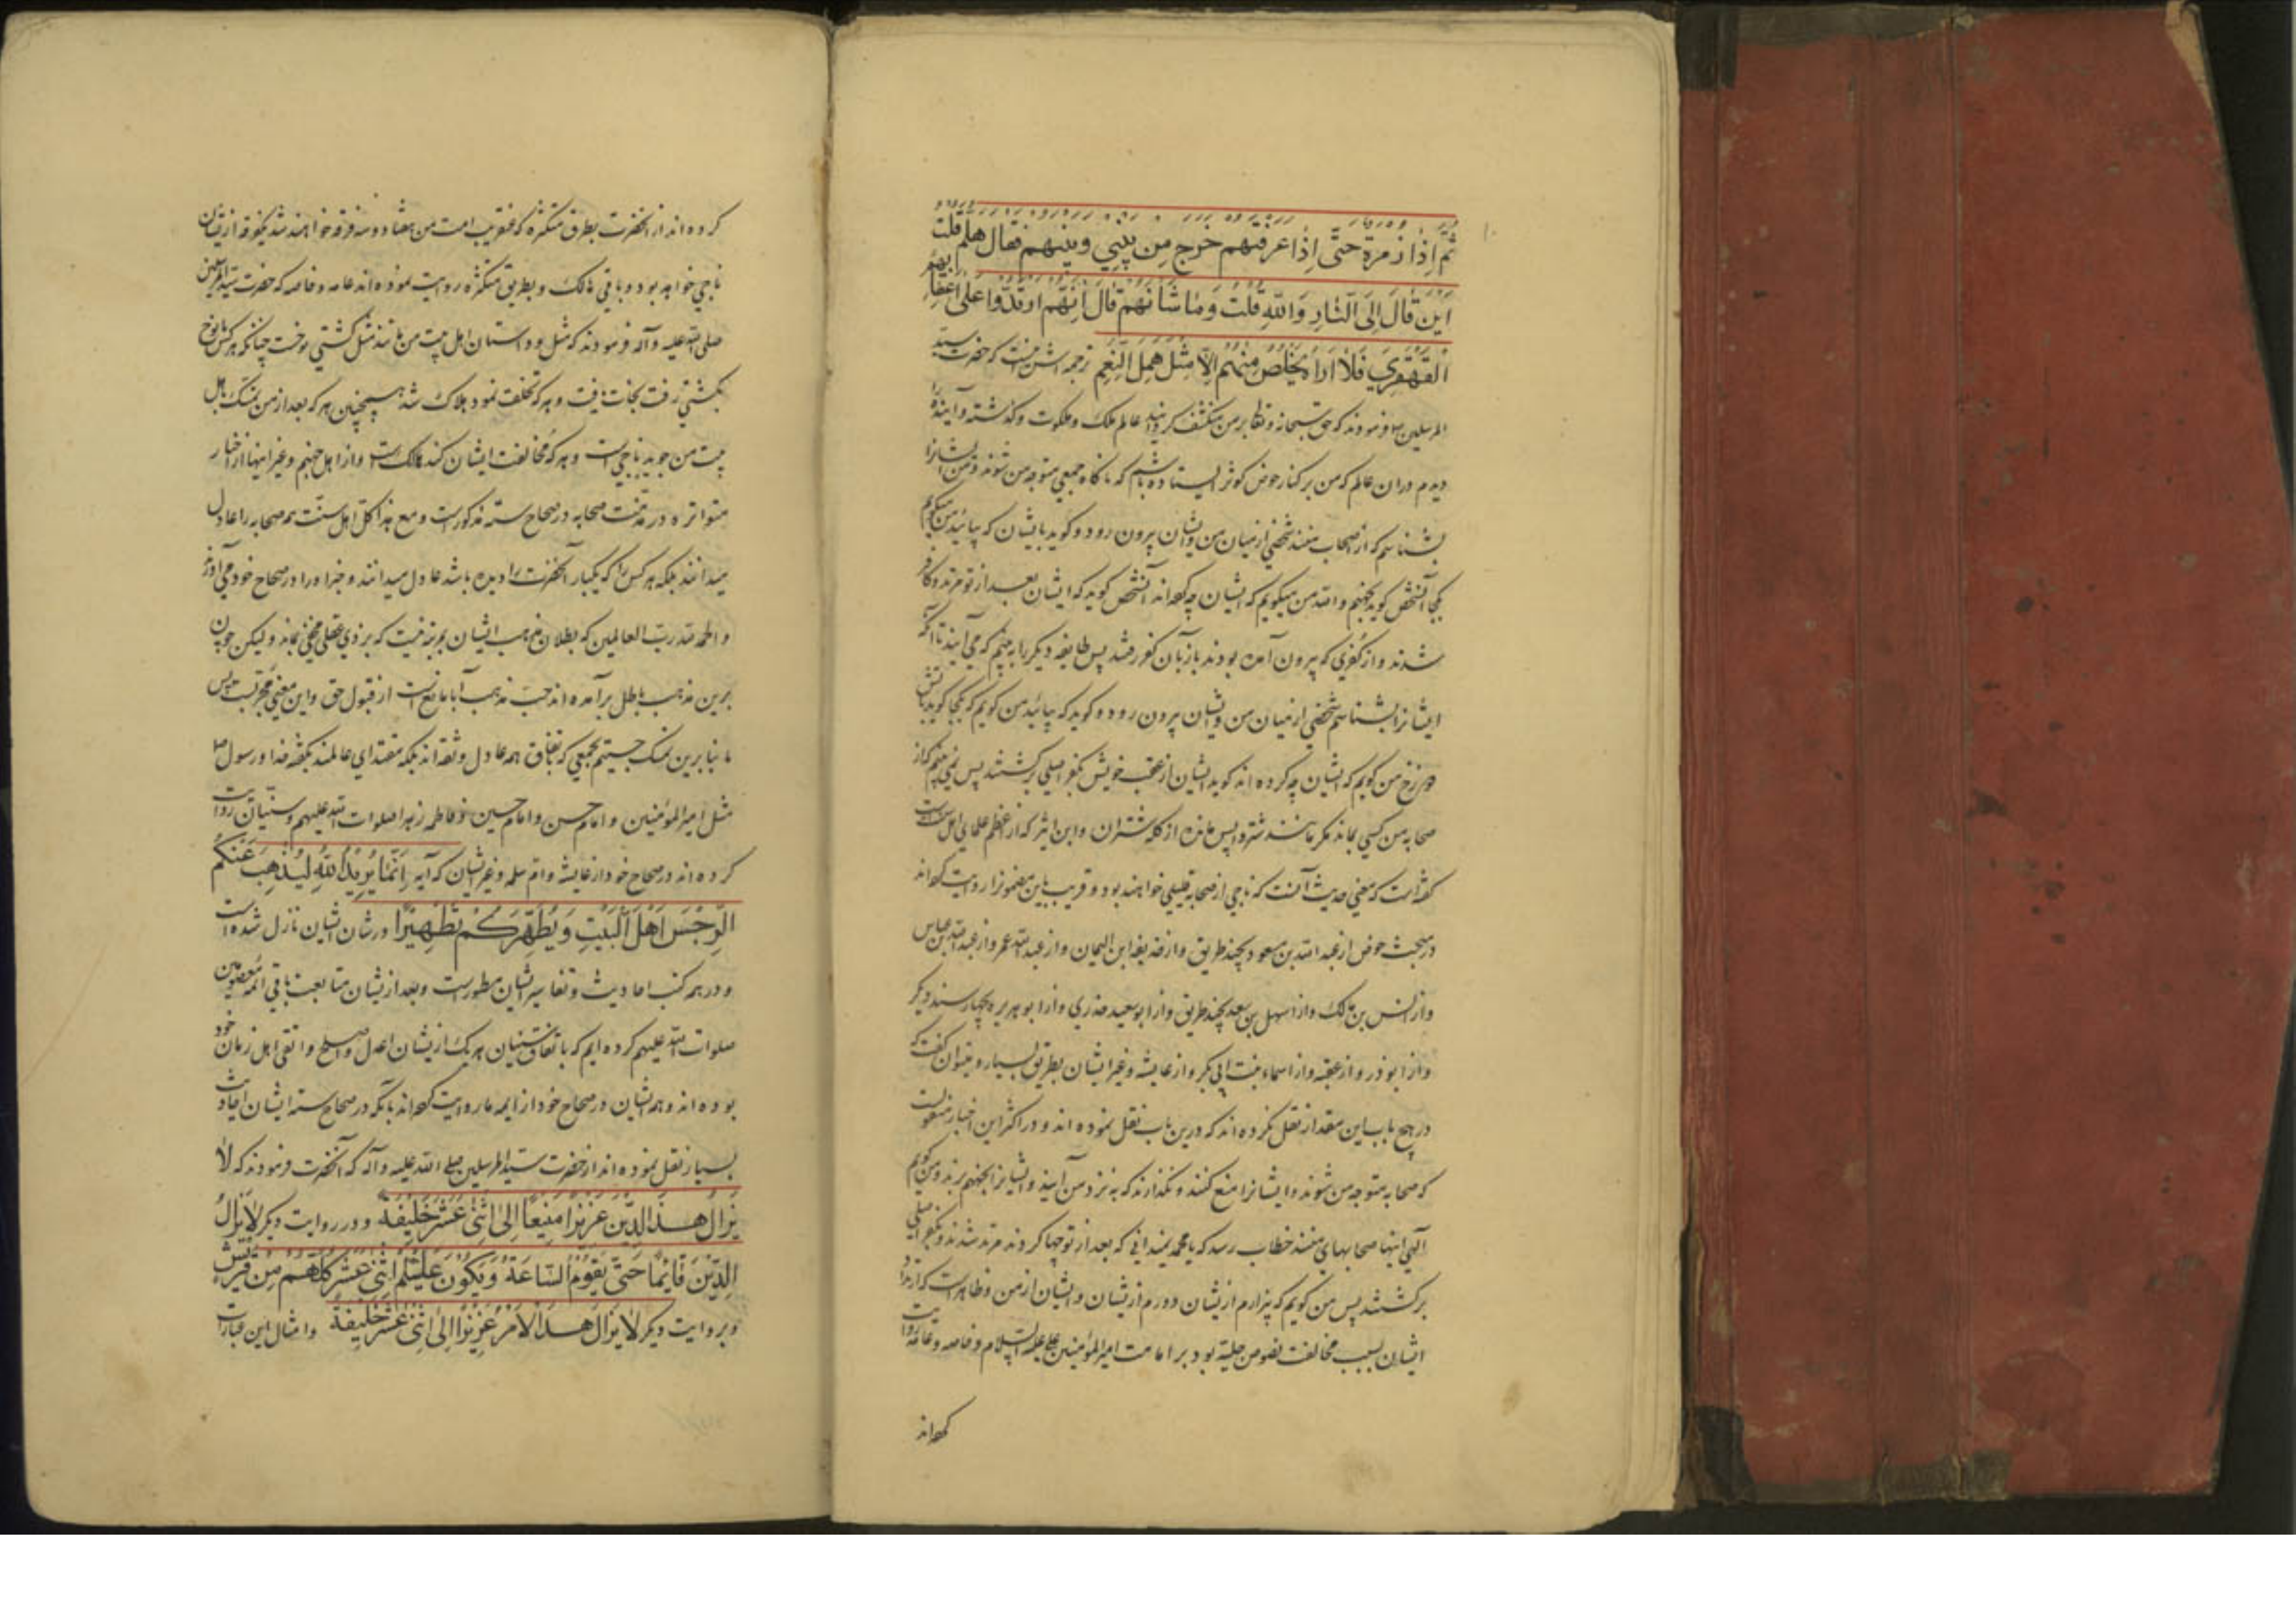 ثُمَّ اِذَا زُمرَة حَتَّى اِذَا عَرَفتُهُم خَرَجَ مِن بَيْنِي وَبَينهم فقال هَلُمَّ قلت
اَيْنَ قَالَ اِلَى النَّارِ وَاللّٰهِ قُلْتُ وَمَا شَأنُهُمْ قَالَ اِنَّهُم ارتَدّوا عَلى اَعْقَابِهِم
القَهْقَرِي فَلَا اَراهُ يَخْلُصُ مِنْهُم اِلّا مِثْلُ هَمَلِ النَّعَمِ ترجمه اش آنست که حضرت سید
المرسلین ص فرمودند که حق سبحانه و تعالی بر من منکشف گردانید عالم ملک و ملکوت و گذشته و آینده را
دیدم در آن عالم که من بر کنار حوض کوثر ایستاده باشم که ناگاه جمعی متوجه من شوند و من ایشانرا
بشناسم که از اصحاب منند شخصی از میان من و ایشان بیرون رود و گوید بایشان که بیائید من میگویم
بکجا آنشخص گوید بجهنم والله من میگویم که ایشان چه کرده‌اند آنشخص گوید که ایشان بعد از تو مرتد و کافر
شدند و از کفری که بیرون آمده بودند باز بآن کفر رفتند پس طایفه دیگر را به بینم که می آیند تا آنکه
ایشانرا بشناسم شخصی از میان من و ایشان بیرون رود و گوید که بیائید من گویم که بکجا گوید بآتش
دوزخ من گویم که ایشان چه کرده اند گوید ایشان از عقب خویش بکفر اصلی برگشتند پس نمی بینم که از
صحابه من کسی بماند مگر مانند شتر واپس مانده از گله شتران و ابن اثیر که از اعظم علمای اهل سنت است
گفته است که معنی حدیث آنست که ناجی از صحابه قلیلی خواهند بود و قریب باین مضمونرا روایت کرده‌اند
در مبحث حوض از عبد الله بن مسعود بچند طریق و از حذیفه ابن الیمان و از عبد الله عمر و از عبد الله بن عباس
و از انس بن مالک و از سهل بن سعد بچند طریق و از ابو سعید خدری و از ابو هریره بچهار سند دیگر
و از ابوذر و از عقبه و از اسماء بنت ابی بکر و از عایشه و غیر ایشان بطریق بسیار و میتوان گفت که
در هیچ باب این مقدار نقل نکرده اند که درین باب نقل نموده اند و در اکثر این اخبار منقولست
که صحابه متوجه من شوند و ایشانرا منع کنند و نگذارند که به نزد من آیند و ایشانرا بجهنم برند و من گویم
الهی اینها صحابهای منند خطاب رسد که یا محمد نمیدانی که بعد از تو چها کردند مرتد شدند و بکفر اصلی
برگشتند پس من گویم که بیزارم از ایشان و دورم از ایشان و ایشان از من و ظاهر است که ارتداد
ایشان بسبب مخالفت نصوص جلیه بود بر امامت امیر المؤمنین علی علیه السلام و خاصه و عامه روایت
کرده‌اند
کرده اند از آنحضرت بطرق متکثره که عنقریب امت من هفتاد و سه فرقه خواهند شد یکفرقه از یشان
ناجی خواهد بود و باقی هالک و بطریق متکثره روایت نموده اند عامه و خاصه که حضرت سید المرسلین
صلی الله علیه و آله فرمودند که مثل و داستان اهل بیت من مانند مثل کشتی نوحست چنانکه هر کس با نوح
بکشتی رفت نجات یافت و هر که تخلف نمود هلاک شد همچنین هر که بعد از من تمسک باهل
بیت من جوید ناجی است و هر که مخالفت ایشان کند هالکست و از اهل جهنم و غیر اینها از اخبار
متواتره در مذمت صحابه در صحاح سته مذکور است و مع هذا کل اهل سنت همه صحابه را عادل
میدانند بلکه هر کس را که یکبار آنحضرت را دیده باشد عادل میدانند و خبر او را در صحاح خود می آورند
والحمد لله رب العالمین که بطلان مذهب ایشان بمرتبه ایست که بر ذی عقلی مخفی نماند ولیکن چون
برین مذهب باطل برآمده اند حب مذهب آبا مانع است از قبول حق و این معنی مجربست پس
ما بنا برین تمسک جستیم بجمعی که باتفاق همه عادل و ثقه اند بلکه مقتدای عالمند بگفته خدا و رسول ص
مثل امیر المؤمنین و امام حسن و امام حسین و فاطمه زهرا صلوات الله علیهم و سنیان روایت
کرده اند در صحاح خود از عایشه و ام سلمه و غیر ایشان که آیه اِنَّمَا يُرِيدُ اللّٰهُ لِيُذْهِبَ عَنكُمُ
الرِّجْسَ اَهْلَ الْبَيْتِ وَيُطَهِّرَكُمْ تَطْهِيرًا در شان ایشان نازل شده است
و در همه کتب احادیث و تفاسیر ایشان مسطور است و بعد از یشان متابعت باقی ائمه معصومین
صلوات الله علیهم کرده ایم که باتفاق سنیان هر یک از یشان اعدل و اصلح و اتقی اهل زمان خود
بوده اند و همه ایشان در صحاح خود از ایمه ما روایت کرده‌اند با آنکه در صحاح سته ایشان احادیث
بسیار نقل نموده اند از حضرت سید المرسلین صلی الله علیه و آله که آنحضرت فرمودند که لا
يَزَالُ هٰذَا الدِّيْنُ عَزِيْزًا مَنِيعًا اِلىٰ اِثْنَىْ عَشَرَ خَلِيْفَةً و در روایت دیگر لَا يَزَالُ
الدِّيْنُ قَائِمًا حَتّىٰ تَقُوْمَ السَّاعَةُ وَيَكُوْنَ عَلَيْكُمْ اِثْنىٰ عَشَرَ كُلُّهُمْ مِنْ قُرَيْشٍ
و بروایت دیگر لَا يَزَالُ هٰذَا الْاَمْرُ عَزِيْزًا اِلىٰ اِثْنىٰ عَشَرَ خَلِيْفَةً و امثال این عبارات